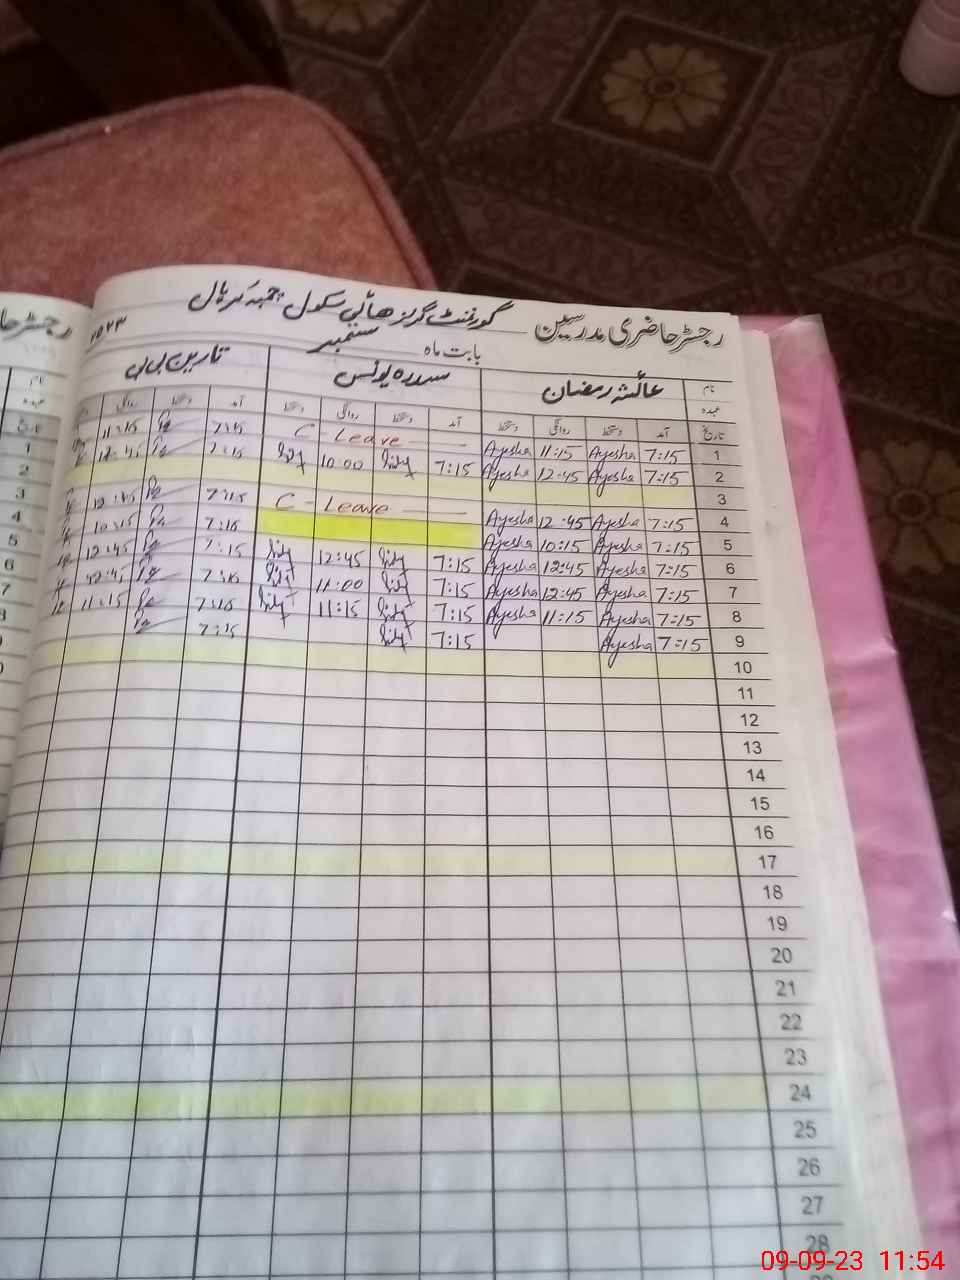 رجسٹر حاضری مدرسین گورنمنٹ گرلز ھائی سکول چمبہ
بابت ماہ ستمبر
نام عائشہ رمضان سدرہ یونس بی بی
عہدہ
تاریخ آمد دستخط روانگی دستخط آمد دستخط روانگی دستخط آمد دستخط روانگی
1 7:15 Ayesha 11:15 Ayesha C - Leave 7:15 11:15
2 7:15 Ayesha 12:45 Ayesha 7:15 10:00 7:15 12:45
3
4 7:15 Ayesha 12:45 Ayesha C - Leave 7:15 12:45
5 7:15 Ayesha 10:15 Ayesha 7:15 10:15
6 7:15 Ayesha 12:45 Ayesha 7:15 12:45 7:15 12:45
7 7:15 Ayesha 12:45 Ayesha 7:15 11:00 7:15 12:45
8 7:15 Ayesha 11:15 Ayesha 7:15 11:15 7:15 11:15
9 7:15 Ayesha 7:15 7:15
10
11
12
13
14
15
16
17
18
19
20
21
22
23
24
25
26
27
28
09-09-23 11:54